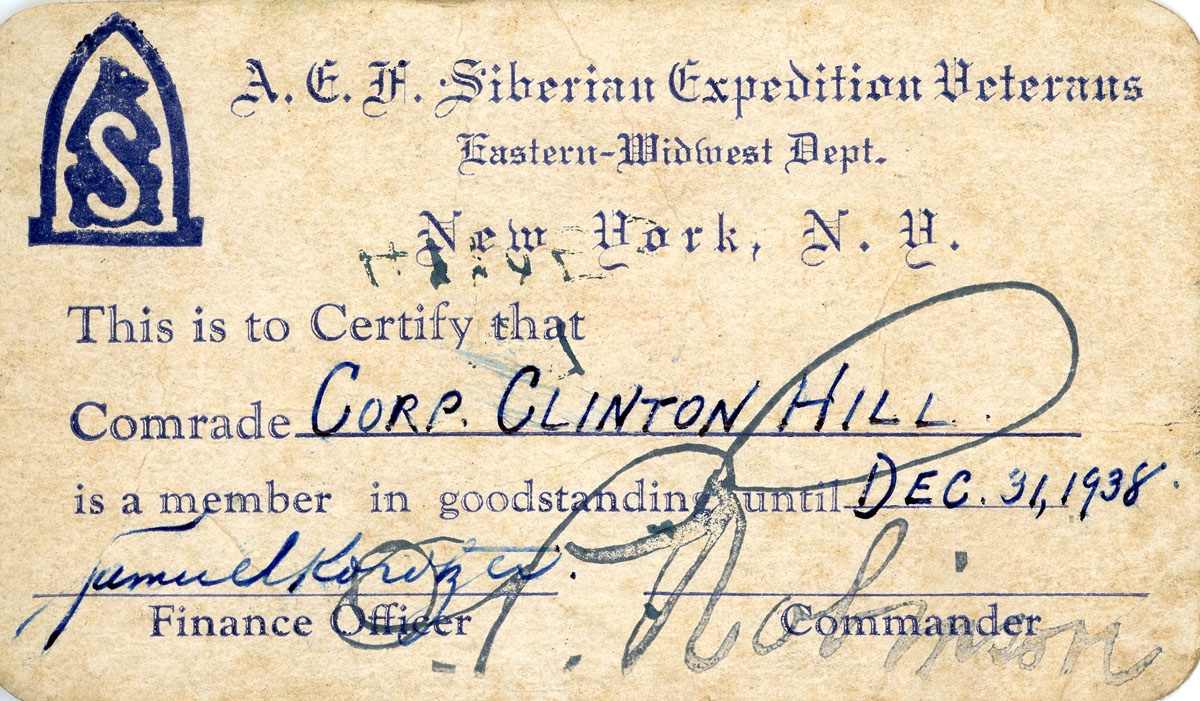 S
A. E. F. Siberian Expedition Veterans
Eastern-Midwest Dept.
New York, N. Y.
This is to Certify that
Comrade CORP. CLINTON HILL.
is a member in goodstanding until DEC. 31, 1938.
Samuel
Robinson
Finance Officer Commander